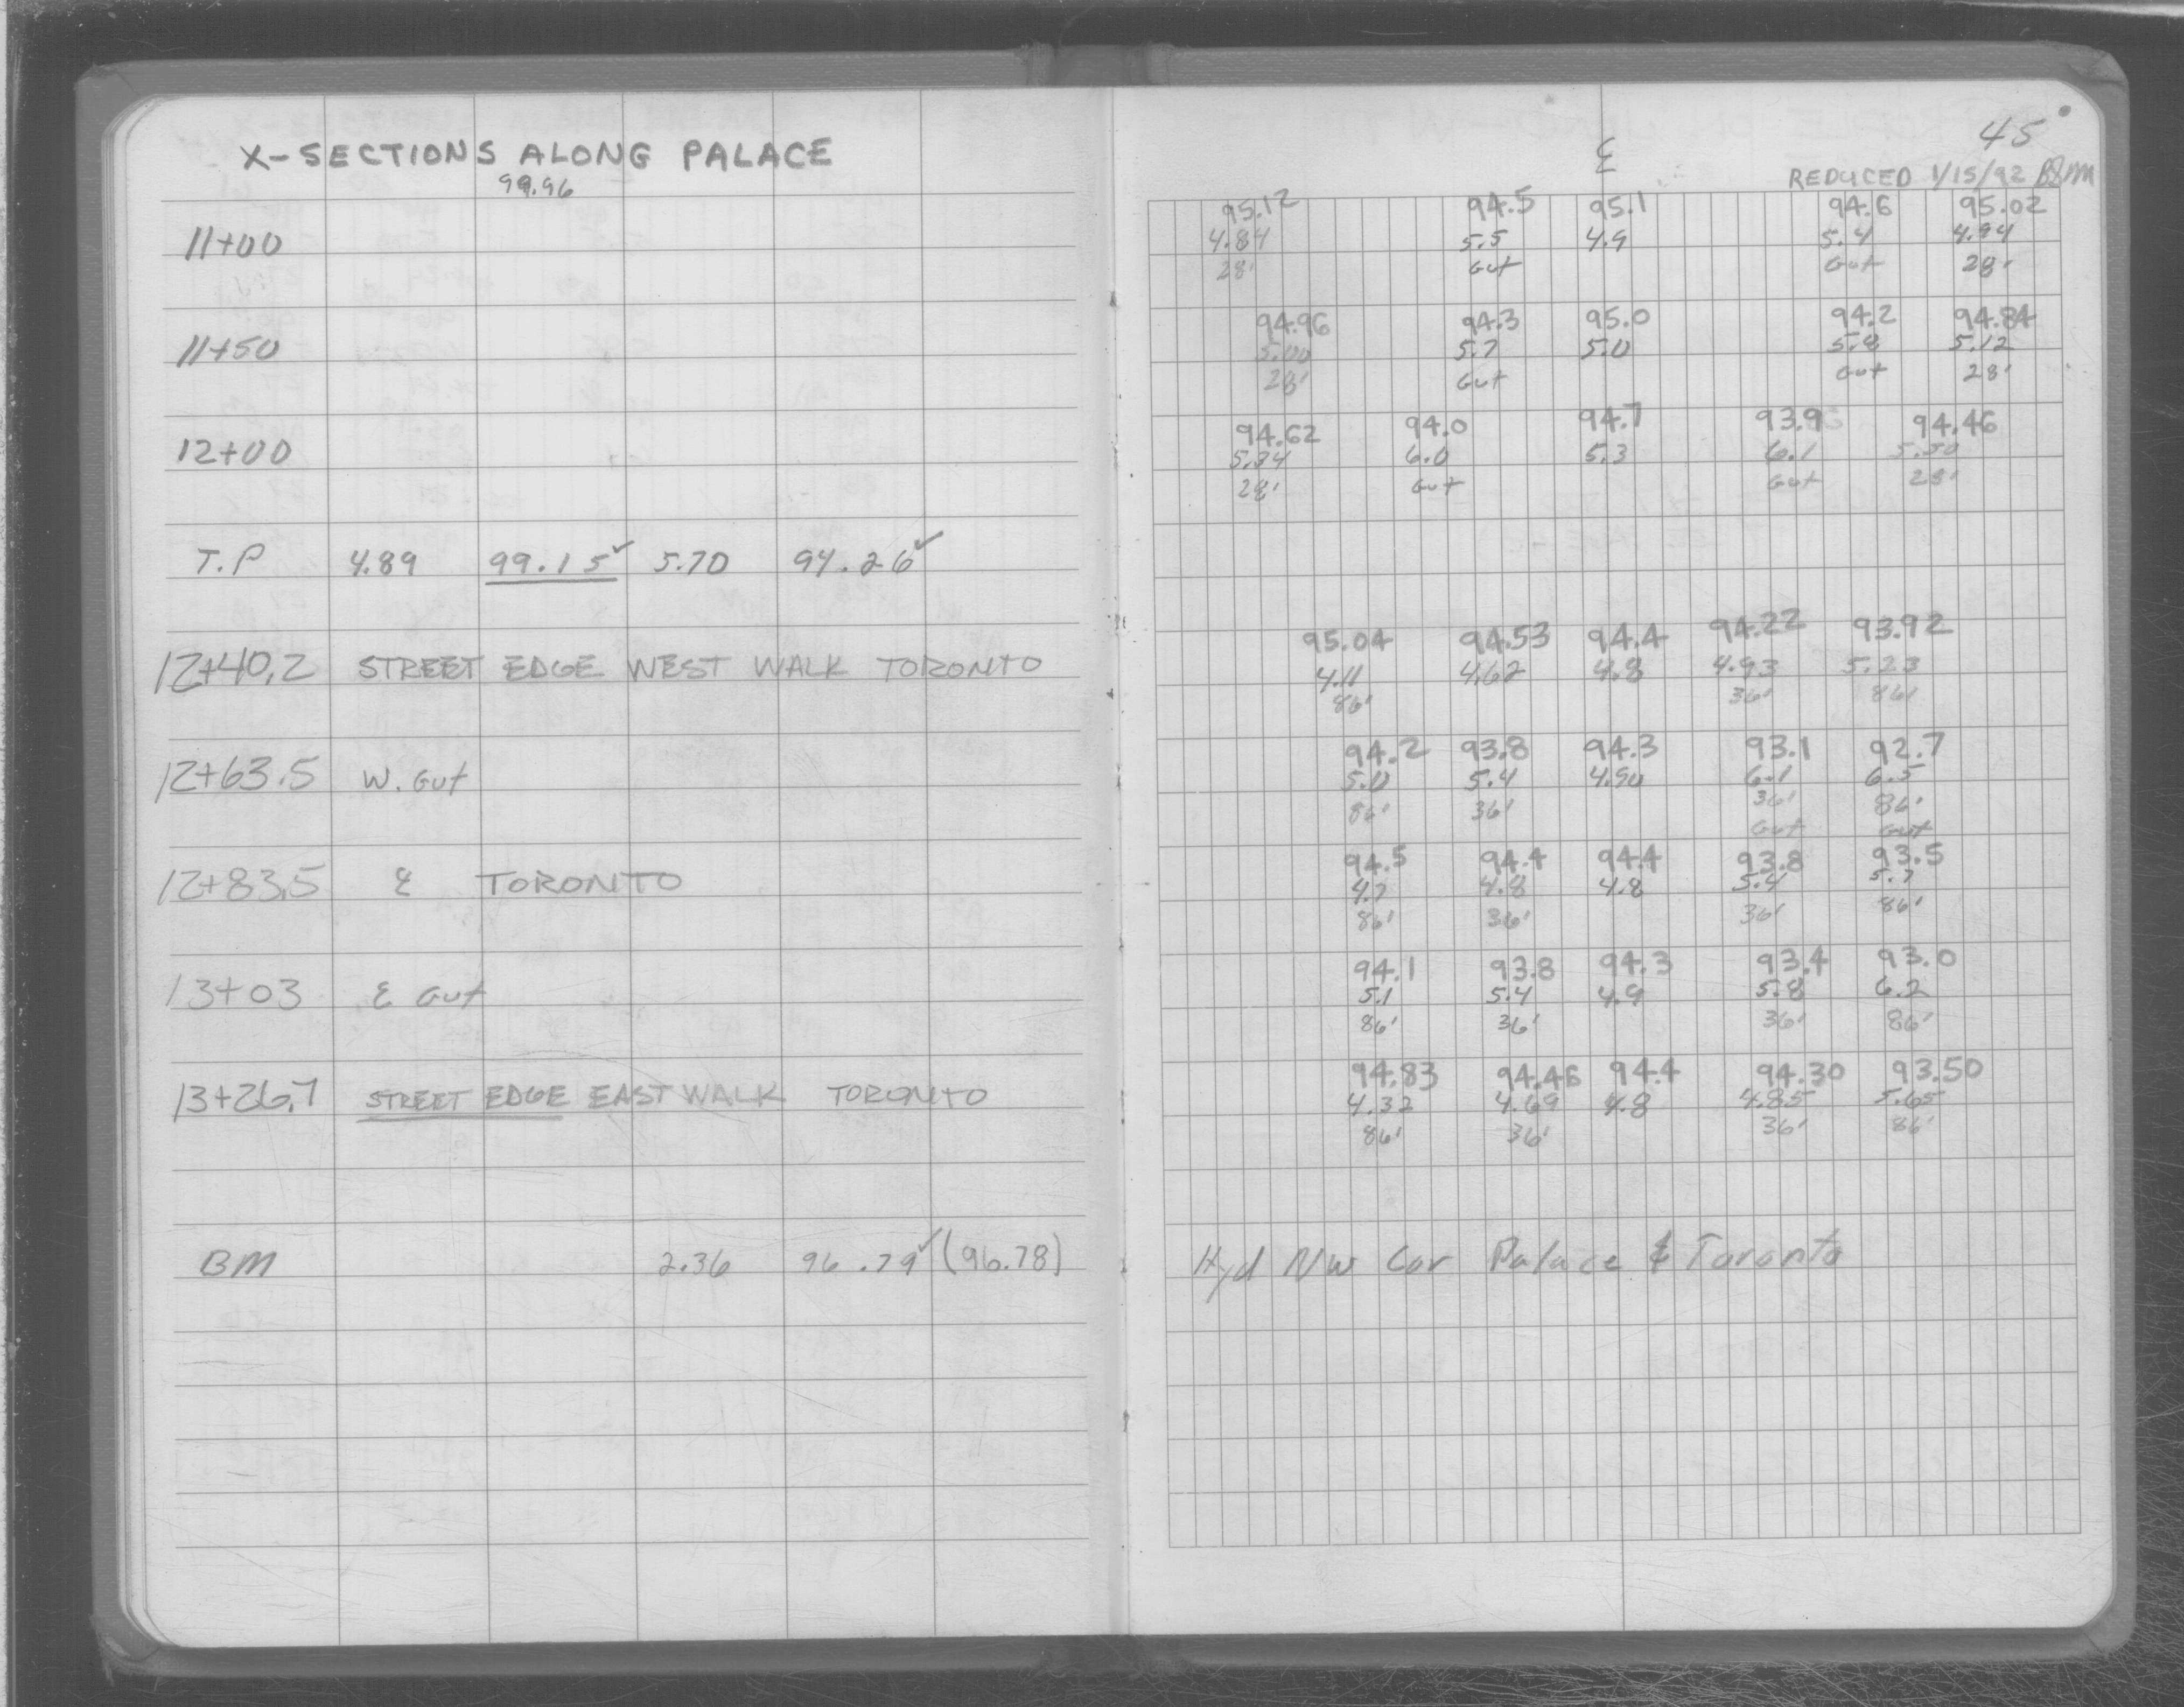 X-SECTIONS ALONG PALACE
99.96
11+00
11+50
12+00
T.P 4.89 99.15✓ 5.70 94.26✓
12+40.2 STREET EDGE WEST WALK TORONTO
12+63.5 W. Gut
12+83.5 ℄ TORONTO
13+03 E Gut
13+26.7 STREET EDGE EAST WALK TORONTO
BM 2.36 96.79✓ (96.78)
45
℄ REDUCED 1/15/92
95.12 94.5 95.1 94.6 95.02
4.84 5.5 4.9 5.4 4.94
28' Gut Gut 28'
94.96 94.3 95.0 94.2 94.84
5.00 5.7 5.0 5.8 5.12
28' Gut Gut 28'
94.62 94.0 94.7 93.9 94.46
5.34 6.0 5.3 6.1 5.50
28' Gut Gut 28'
95.04 94.53 94.4 94.22 93.92
4.11 4.62 4.8 4.93 5.23
86' 36' 86'
94.2 93.8 94.3 93.1 92.7
5.0 5.4 4.90 6.1 6.5
86' 36' 36' 86'
Gut Gut
94.5 94.4 94.4 93.8 93.5
4.7 4.8 4.8 5.4 5.7
86' 36' 36' 86'
94.1 93.8 94.3 93.4 93.0
5.1 5.4 4.9 5.8 6.2
86' 36' 36' 86'
94.83 94.46 94.4 94.30 93.50
4.32 4.69 4.8 4.85 5.65
86' 36' 36' 86'
Hyd NW Cor Palace & Toronto